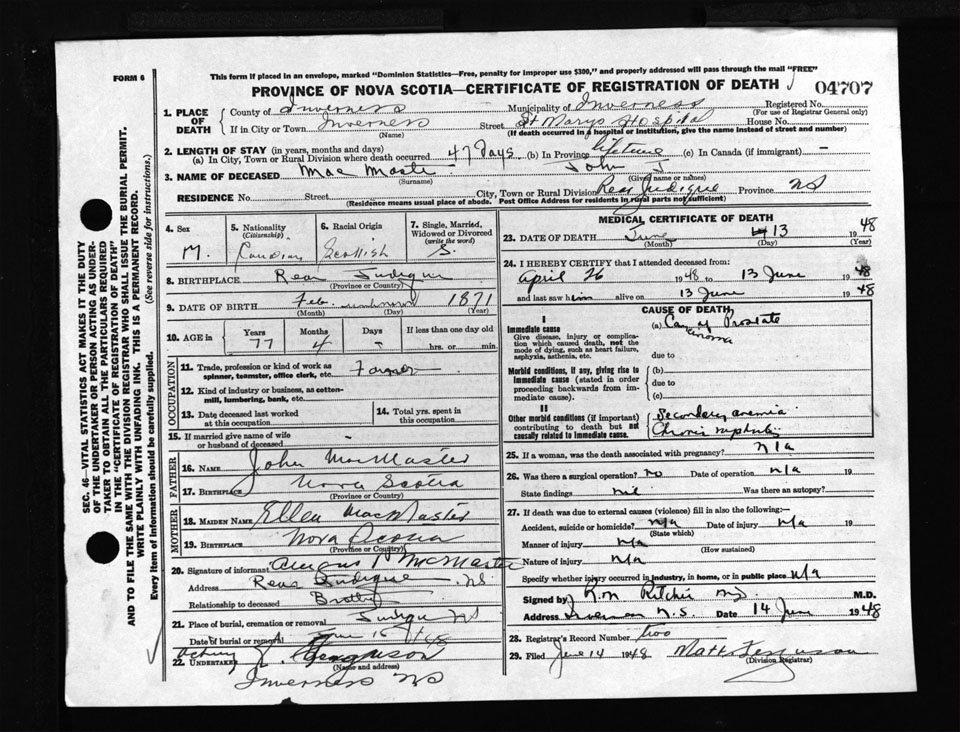 FORM 6
This form if placed in an envelope, marked "Dominion Statistics—Free, penalty for improper use $300," and properly addressed will pass through the mail "FREE"
PROVINCE OF NOVA SCOTIA—CERTIFICATE OF REGISTRATION OF DEATH
04707
SEC. 46—VITAL STATISTICS ACT MAKES IT THE DUTY
OF THE UNDERTAKER OR PERSON ACTING AS UNDER-
TAKER TO OBTAIN ALL THE PARTICULARS REQUIRED
IN THE "CERTIFICATE OF REGISTRATION OF DEATH"
AND TO FILE THE SAME WITH THE DIVISION REGISTRAR WHO SHALL ISSUE THE BURIAL PERMIT.
WRITE PLAINLY WITH UNFADING INK. THIS IS A PERMANENT RECORD.
Every item of information should be carefully supplied. (See reverse side for instructions.)
1. PLACE OF DEATH County of Inverness Municipality of Inverness Registered No.
(For use of Registrar General only)
If in City or Town Inverness Street St Marys Hospital House No.
(Name) (If death occurred in a hospital or institution, give the name instead of street and number)
2. LENGTH OF STAY (in years, months and days)
(a) In City, Town or Rural Division where death occurred 47 days (b) In Province lifetime (c) In Canada (if immigrant) —
3. NAME OF DECEASED Mac Master John J
(Surname) (Given name or names)
RESIDENCE No. Street City, Town or Rural Division Rear Judique Province NS
(Residence means usual place of abode. Post Office Address for residents in rural parts not sufficient)
4. Sex M.
5. Nationality (Citizenship) Canadian
6. Racial Origin Scottish
7. Single, Married, Widowed or Divorced (write the word) S.
8. BIRTHPLACE Rear Judique
(Province or Country)
9. DATE OF BIRTH Feb. unknown 1871
(Month) (Day) (Year)
10. AGE in Years Months Days If less than one day old
77 4 - hrs. or min.
OCCUPATION
11. Trade, profession or kind of work as spinner, teamster, office clerk, etc. Farmer
12. Kind of industry or business, as cotton-mill, lumbering, bank, etc.
13. Date deceased last worked at this occupation
14. Total yrs. spent in this occupation
15. If married give name of wife or husband of deceased -
FATHER
16. NAME John MacMaster
17. BIRTHPLACE Nova Scotia
(Province or Country)
MOTHER
18. MAIDEN NAME Ellen MacMaster
19. BIRTHPLACE Nova Scotia
(Province or Country)
20. Signature of informant Angus McMaster
Address Rear Judique NS.
Relationship to deceased Brother
21. Place of burial, cremation or removal Judique NS
Date of burial or removal June 15 1948
22. UNDERTAKER Acting Ferguson
(Name and address)
Inverness NS
MEDICAL CERTIFICATE OF DEATH
23. DATE OF DEATH June 13 1948
(Month) (Day) (Year)
24. I HEREBY CERTIFY that I attended deceased from:
April 26 1948 to 13 June 1948
and last saw him alive on 13 June 1948
CAUSE OF DEATH
I
Immediate cause
Give disease, injury or complication which caused death, not the mode of dying, such as heart failure, asphyxia, asthenia, etc.
(a) Carcinoma of Prostate
due to
Morbid conditions, if any, giving rise to immediate cause (stated in order proceeding backwards from immediate cause).
(b)
due to
(c)
II
Other morbid conditions (if important) contributing to death but not causally related to immediate cause.
Secondary anemia
Chronic nephritis
25. If a woman, was the death associated with pregnancy? N/a
26. Was there a surgical operation? No Date of operation n/a 19
State findings nil Was there an autopsy?
27. If death was due to external causes (violence) fill in also the following:-
Accident, suicide or homicide? n/a Date of injury n/a 19
(State which)
Manner of injury n/a
(How sustained)
Nature of injury n/a
Specify whether injury occurred in industry, in home, or in public place n/a
Signed by R.N Ritchie M.D.
Address Inverness N.S. Date 14 June 1948
28. Registrar's Record Number two
29. Filed June 14 1948 Matt Ferguson
(Division Registrar)